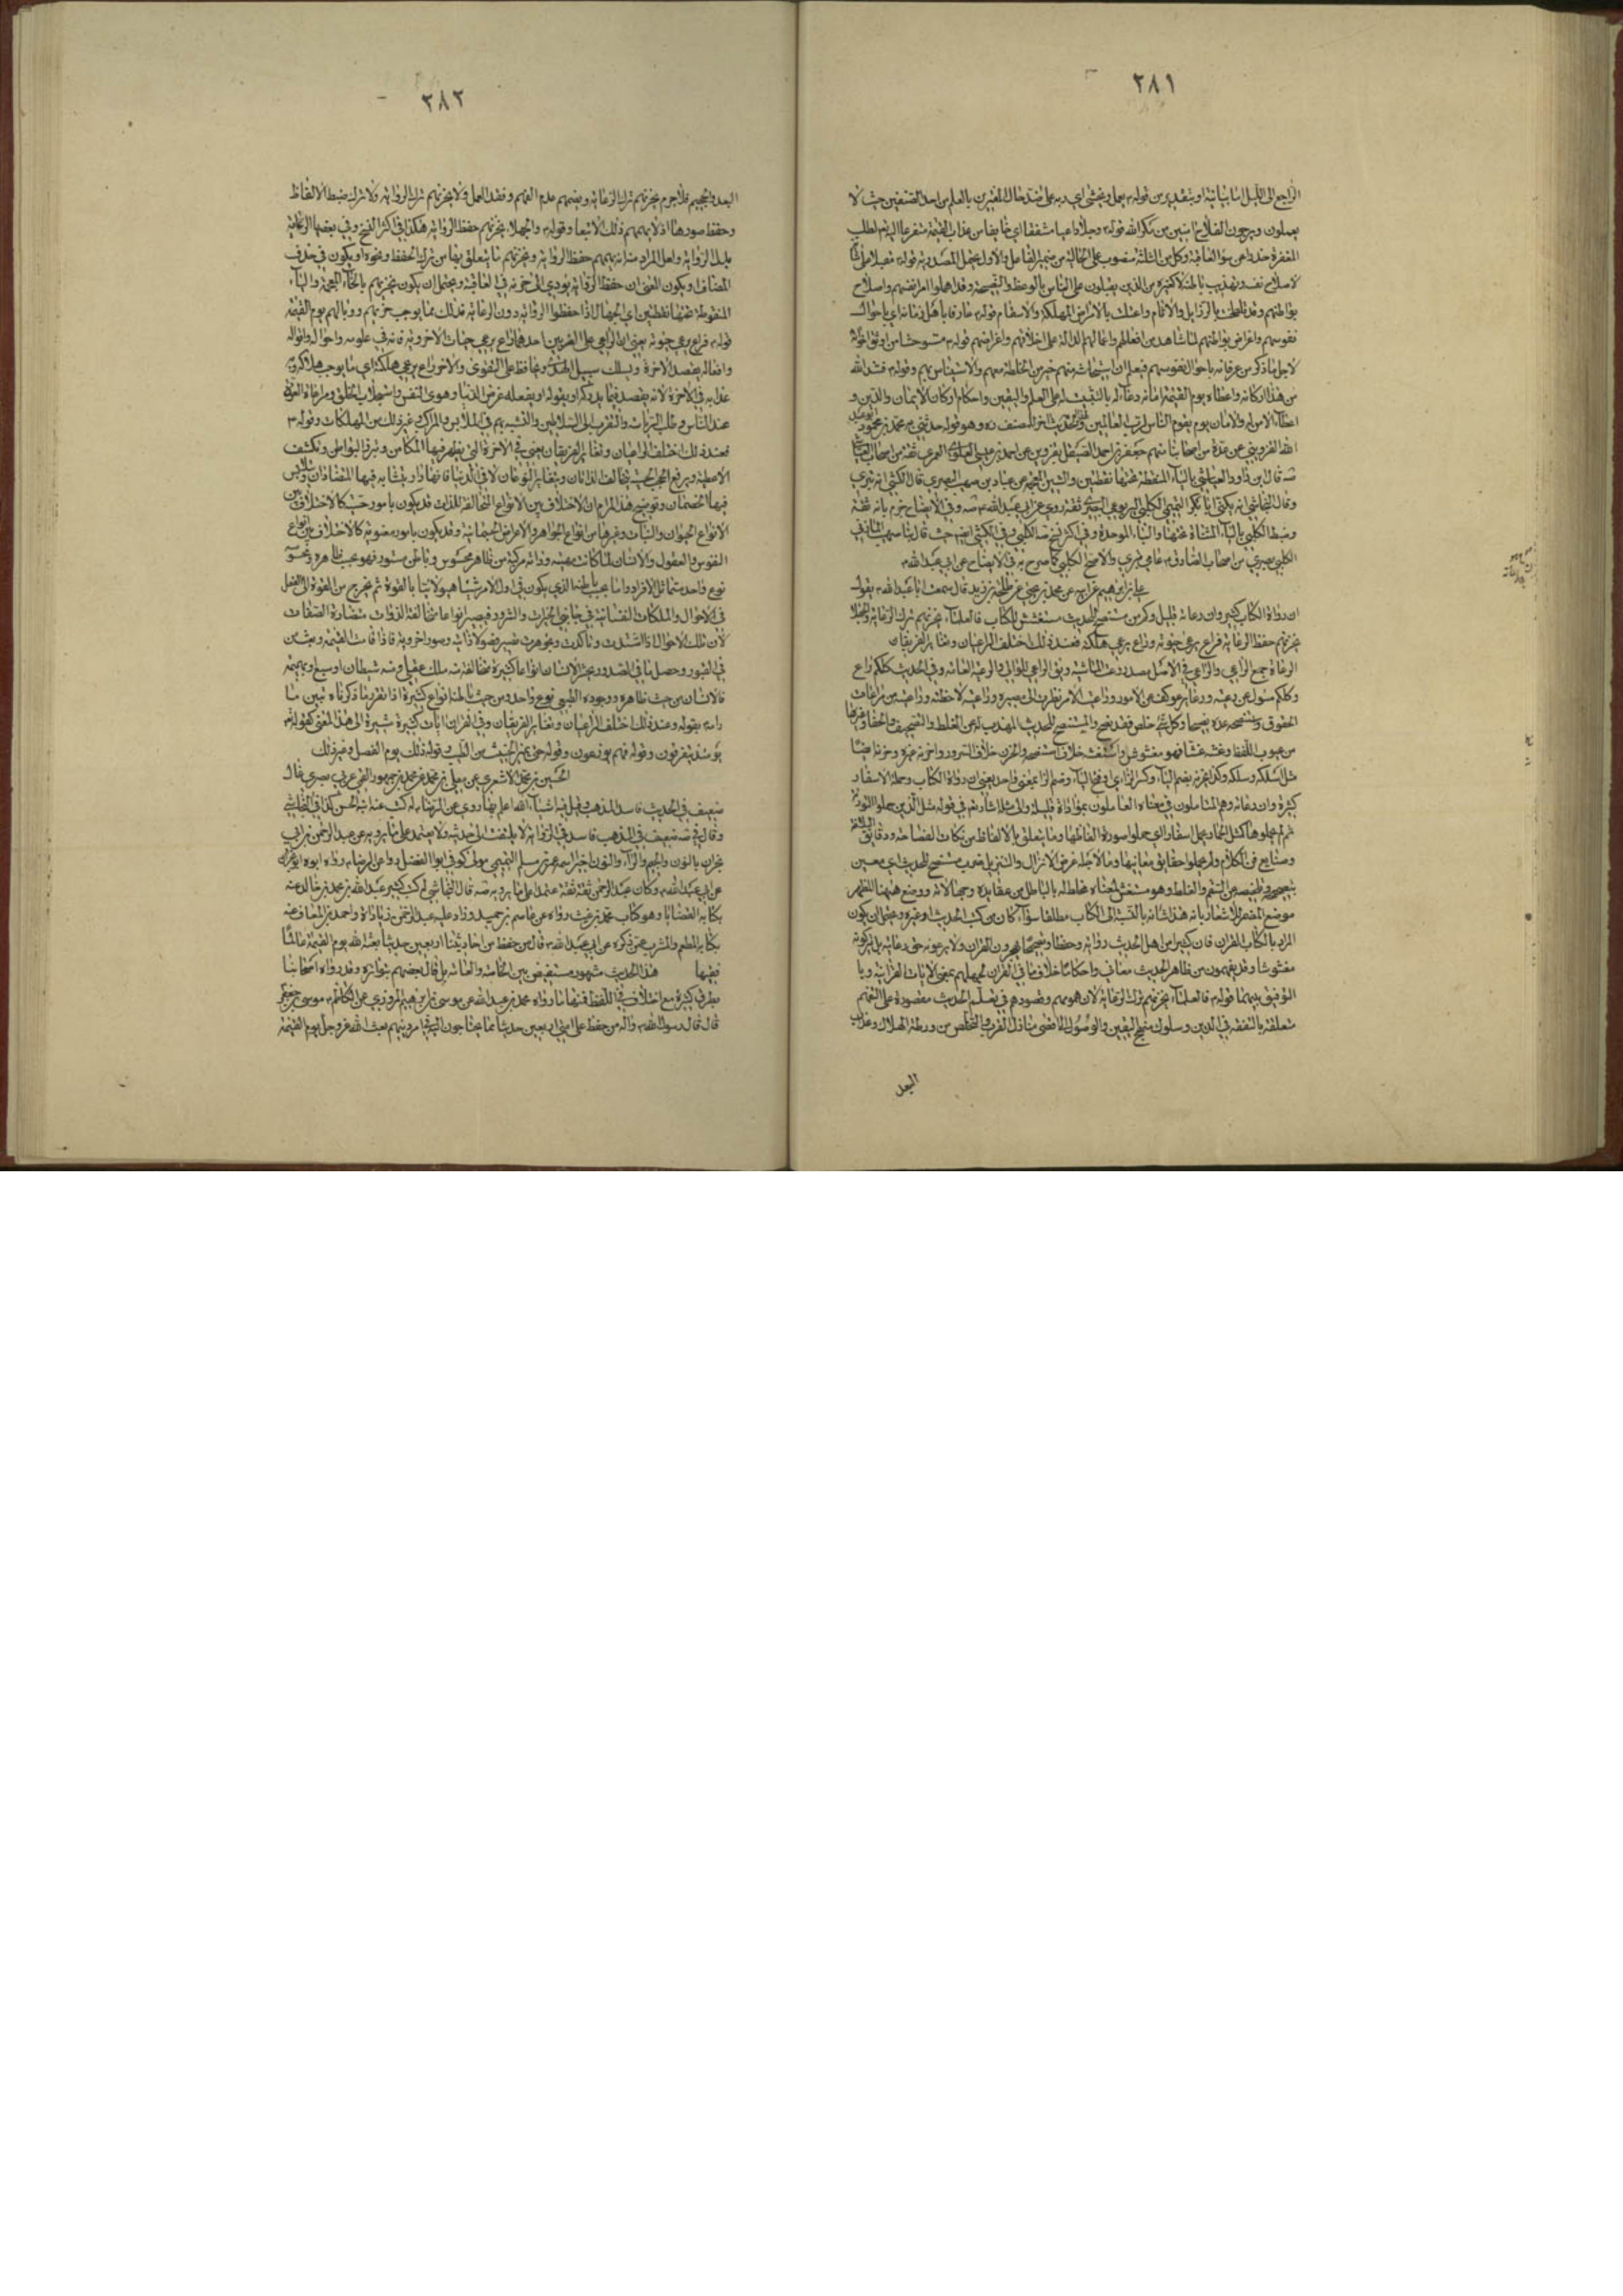 ٢٨١
الراجع الى الليل اما بيانية او بتقدير من قوله يعمل ويخشى اي دربه على ضد حال المغترين بالعلم من احد الصنفين حيث لا
يعملون ويرجون الفلاح امنين من مكر الله قوله وجلا داعيا مشفقا اي خايفا من عذاب القيمة متضرعا اليه لطلب
المغفرة حذرا من سوء العاقبة وكل من الثلثة منصوب على الحالية من ضمير الفاعل والاول يحتمل المصدرية قوله مقبلا على شانه
لاصلاح نفسه وتهذيب باطنه لا كثيره من الذين يقبلون على الناس بالوعظ والنصيحة وقد اهملوا امر انفسهم واصلاح
بواطنهم وقد تلطخت بالرذايل والاثام واعتلت بالامراض المهلكة والاسقام قوله عارفا باهل زمانه اي باحوال
نفوسهم واغراض بواطنهم لما شاهد من افعالهم واعمالهم الدالة على اخلاقهم واغراضهم قوله مستوحشا من اوثق اخوانه
لاجل ما ذكر من عرفانه باحوال نفوسهم فيعلم ان استيحاشه منهم خير من المخالطة معهم والاستيناس بهم وقوله فشد الله
من هذا اركانه واعطاه يوم القيمة امانه دعاء له بالتثبيت له على العلم واليقين واحكام اركان الايمان والدين و
اعطاء الامن له والامان يوم يقوم الناس لرب العالمين ولهذا الحديث اخر للمصنف ره وهو قوله حدثني به محمد بن محمود ابو عبد
الله القزويني عن عدة من اصحابنا منهم جعفر بن احمد الصيقل بقزوين عن احمد بن عيسى العلوي
صه قال بن داود العياشي بالياء المنقطة تحتها نقطتين والشين المعجمة عن عباد بن صهيب البصري قال الكشي انه بتري
وقال النجاشي انه يكنى ابا بكر التميمي الكليبي اليربوعي البصري ثقة روى عن ابي عبد الله صه وفي الايضاح جزم بانه ثقة
وضبط الكليبي بالياء المثناة تحتها والباء الموحدة وفي اكثر نسخ صه الكلبي وفي الكشي ايضا حيث قال عباد بن صهيب المازني
الكلبي بصري من اصحاب الصادق عامي بتري والاصح الكليبي كما صرح به في الايضاح عن ابي عبد الله
علي بن ابراهيم عن ابيه عن محمد بن يحيى عن طلحة بن زيد قال سمعت ابا عبد الله يقول
ان رواة الكتاب كثير وان رعاته قليل وكم من مستنصح للحديث مستغش للكتاب فالعلماء يحزنهم ترك الرعاية والجهلاء
يحزنهم حفظ الرعاية فراع يرعى حيوته وراع يرعى هلكته فعند ذلك اختلف الراعيان وتغاير الفريقان
الرعاة جمع الراعي والراعي في الاصل مصدر رعت الماشية ويق الراعي للوالي والرعية العامة وفي الحديث كلكم راع
وكلكم مسؤل عن رعيته ورعاية رعوكف عن الامور وراعيت الامر نظرت الى مصيره وراعيته لاحظته وراعيته من مراعات
الحقوق واستنصحه عده نصيحا وكل شئ خلص فقد نصح والمستنصح للحديث المهذب له عن الغلط والتصحيف والحفاظ
من عيوب اللفظ وغشه غشا فهو مغشوش واستغشه خلاف استنصحه والحزن خلاف السرور واحزنه غيره وحزنه ايضا
مثل اسلكه وسلكه وكذا يحزنه بضم الياء وكسر الزاي او فتح الياء وضم الزا بمعنى واحد يعني ان رواة الكتاب وحملة الاسفار
كثيرة وان رعاته وهم المتاملون في معناه العاملون بمؤداه قليلة والى مثله اشار بثم في قوله مثل الذين حملوا التورية
ثم لم يحملوها كمثل الحمار يحمل اسفارا اي حملوا صورة الفاظها وما يتعلق بالالفاظ من نكات الفصاحة ودقايق البلاغة
وصنايع في الكلام ولم يحملوا حقايق معانيها وما لاجله غرض الانزال والتنزيل فرب مستنصح للحديث اي معين
بتصحيحه وتخليصه عن السقم والغلط وهو مستغش لمعناه مخاطله بالباطل من عقايده وجهالاته ووضع ههنا المظهر
موضع المضمر للاشعار بانه هذا شانه بالنسبة الى الكتاب مطلقا سواء كان من كتب الحديث او غيره ويحتمل ان يكون
المراد بالكتاب القران فان كثيرا من اهل الحديث رواية وحفظا وتصحيحا يهجرون القران ولا يرعونه حق رعايته بل يتركونه
مغشوشا وقد يفهمون من ظاهر الحديث معاني واحكاما خلاف ما في القران لجهلهم بمعنى الايات القرانية وما
التوفيق بينهما قوله فالعلماء يحزنهم ترك الرعاية لان همومهم وقصودهم في تعلم الحديث مقصورة على التفهم
متعلقة بالتفقه في الدين وسلوك منهج اليقين والوصول الى اقصى منازل القرب والتخلص من ورطة الهلاك وعذاب
البعد
٢٨٢
البعد والجحيم فلا جرم يحزنهم ترك الرعاية ويهمهم عدم الفهم وفقد العمل ولا يحزنهم ترك الرواية ولا ترك ضبط الالفاظ
وحفظ صورها اذ لا يهمهم ذلك الا تبعا وقوله والجهلاء يحزنهم حفظ الرواية هكذا في اكثر النسخ وفي بعضها الرعاية
بدل الرواية ولعل المراد منه انه يهمهم حفظ الرواية ويحزنهم ما يتعلق بها من ترك الحفظ ونحوه او يكون في حذف
المضاف او يكون المعنى ان حفظ الرواية يؤدي الى حزنه في العاقبة ويحتمل ان يكون يخزيهم بالخاء المعجمة والياء
المنقوطة تحتها نقطتين اي الجهال اذا حفظوا الرواية دون الرعاية فذلك مما يوجب خزيهم ووبالهم يوم القيمة
قوله فراع يرعى حيوته يعني ان الراعي على الضربين احدهما راع يرعى حيات الاخروية فانه في علومه واحواله واقواله
وافعاله يقصد الاخرة ويسلك سبيل الحق ويحافظ على التقوى والاخر راع يرعى هلكته اي ما يوجب هلاكه و
عذابه في الاخرة لانه يقصد فيما يذكره او يقوله او يفعله غرض الدنيا وهوى النفس واستجلاب الخلق ومراعاة العرف
عند الناس وطلب الترياسة والتقرب الى السلاطين والتشبه بهم في الملابس والمراكب وغير ذلك من المهلكات وقوله
فعند ذلك اختلف الراعيان وتغاير الفريقان يعني في الاخرة التي يظهر فيها المكامن وتبرز البواطن وتكشف
الاغطية ويرفع الحجب يتخالف الذاتان ويتغاير النوعان لا في الدنيا فانها دار يتشابه فيها المتضادان ويتلابس
فيها الخصمان وتوضيح هذا المرام ان الاختلاف بين الانواع المتخالفة الذات قد يكون بامور حسية كالاختلاف بين
الانواع الحيوان والنبات وغيرها من انواع الجواهر والاعراض الجسمانية وقد يكون بامور معنوية كالاختلاف بين انواع
النفوس والعقول والانسان لما كانت مهيته وذاته مركبة من ظاهر محسوس وباطن مستور فهو بحسب ظاهره ومحسوسه
نوع واحد متماثل الافراد واما بحسب باطنه الذي يكون في اول الامر شيئا هيولانيا بالقوة ثم يخرج من القوة الى الفعل
في الاحوال والملكات النفسانية في جانبي الخيرات والشرور فيصير انواعا متخالفة الذوات متضادة الصفات
لان تلك الاحوال اذا اشتدت وتاكدت وتجوهرت تصير فصولا ذاتية وصورا اخروية فاذا قامت القيمة وبعث من
في القبور وحصل ما في الصدور يحشر الانسان انواعا كثيرة متخالفة منه ملك عقلي ومنه شيطان او سبع وبهيمة
فالانسان من حيث ظاهره ووجوده الطبيعي نوع واحد ومن حيث باطنه انواع كثيرة اذا تقرر ما ذكرناه تبين ما
رامه بقوله وعند ذلك اختلف الراعيان وتغاير الفريقان وفي القران ايات كثيرة مشيرة الى هذا المعنى كقوله
يومئذ يتفرقون وقوله فهم يوزعون وقوله حتى يميز الخبيث من الطيب وقوله ذلك يوم الفصل وغير ذلك
الحسين بن محمد الاشعري عن معلى بن محمد عن محمد بن جمهور القمي عربي بصري قال
ضعيف في الحديث فاسد المذهب وقيل فيه اشياء الله اعلم بها روى عن الرضا له كتب عنه ابنه الحسن كذا في النجاشي
وقال في صه ضعيف في المذهب فاسد في الرواية لا يلتفت الى حديثه ولا يعتمد على ما يرويه عن عبد الرحمن بن ابي
نجران بالنون والجيم والراء والنون اخيرا اسمه عمرو بن مسلم التميمي مولى كوفي ابو الفضل روى عن الرضا وروى ابوه ابو نجران
عن ابي عبد الله وكان عبد الرحمن ثقة ثقة معتمدا على ما يرويه صه قال النجاشي له كتب كثيرة عبد الله بن محمد بن خالد عنه
بكتابه القضايا وهو كتاب محمد بن قيس رواه عن عاصم بن حميد وزاد عليه عبد الرحمن زيادات واحمد بن المعافى عنه
بكتابه المطعم والمشرب عمن ذكره عن ابي عبد الله قال من حفظ من احاديثنا اربعين حديثا بعثه الله يوم القيمة عالما
فقيها هذا الحديث مشهور مستفيض بين الخاصة والعامة بل قال بعضهم بتواتره وقد رواه اصحابنا
بطرق كثيرة مع اختلاف في اللفظ فمنها ما رواه محمد بن عبد الله عن موسى بن ابراهيم المروزي عن الكاظم موسى بن جعفر
قال قال رسول الله واله من حفظ على امتي اربعين حديثا مما يحتاجون اليه في امر دينهم بعثه الله عز وجل يوم القيمة